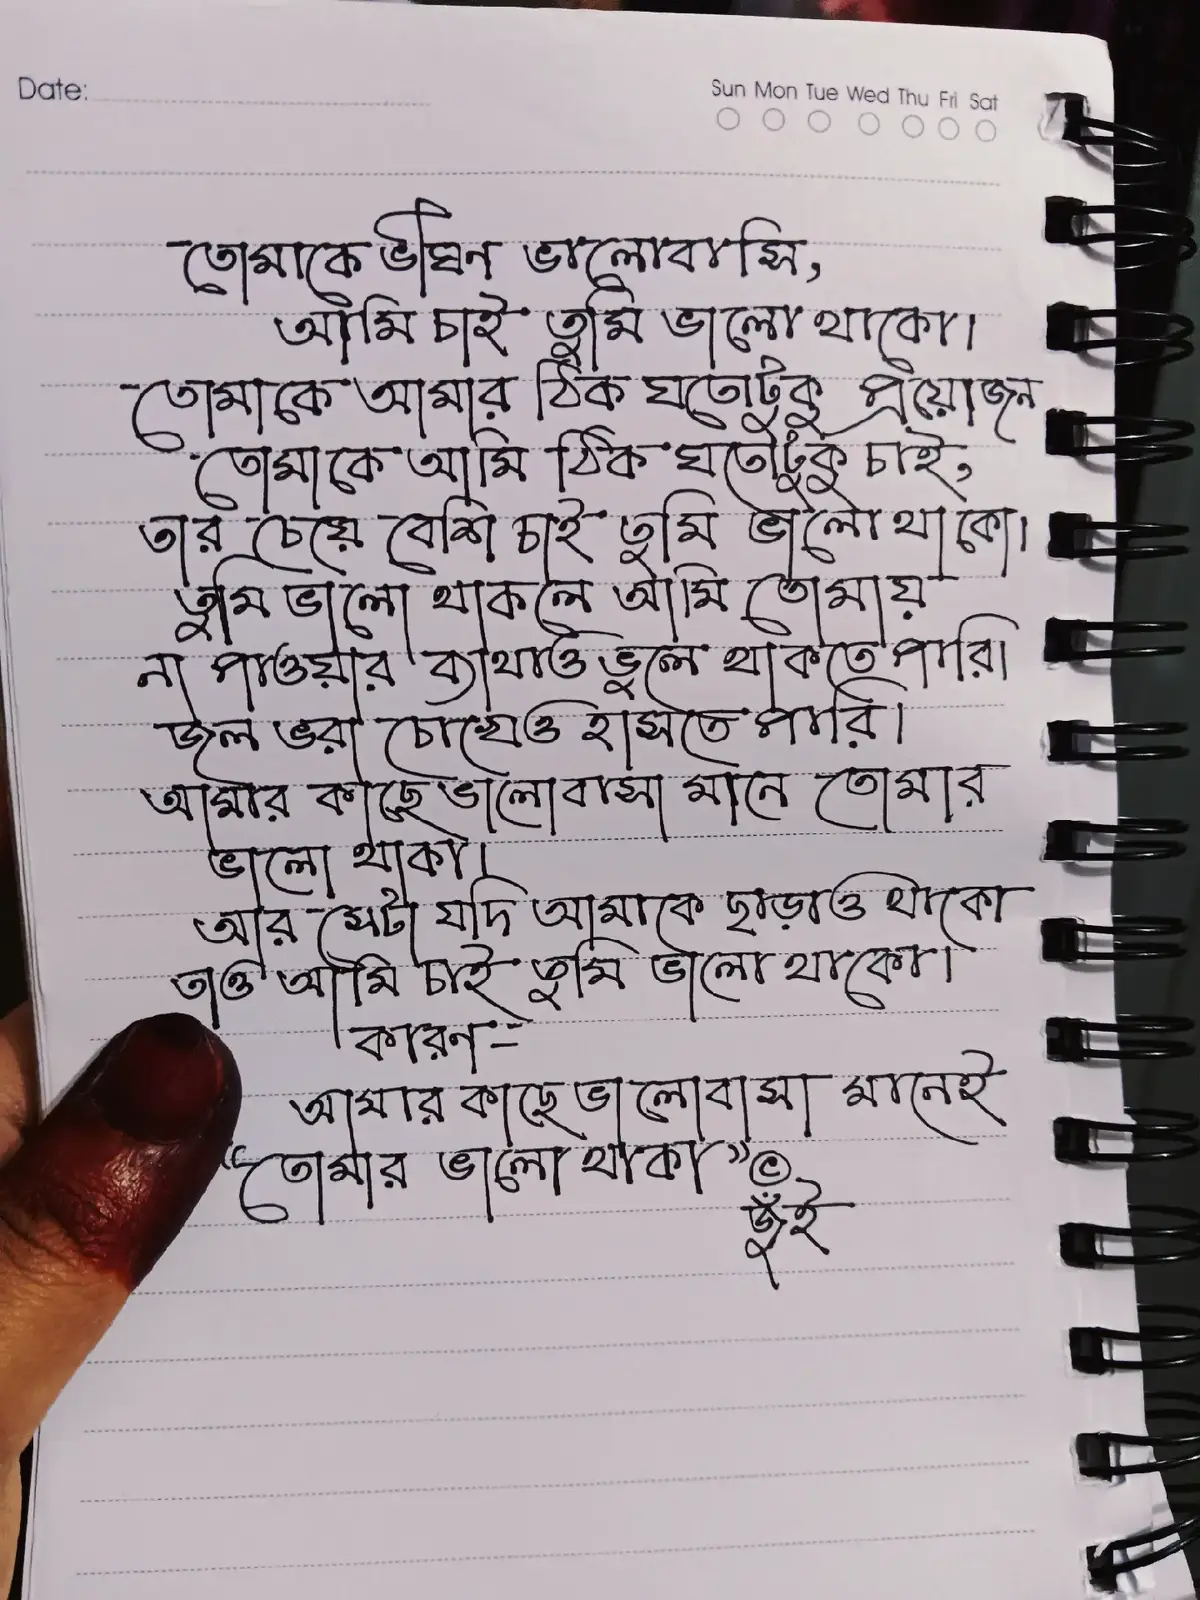 Date:
Sun Mon Tue Wed Thu Fri Sat
তোমাকে ভীষন ভালোবাসি,
আমি চাই তুমি ভালো থাকো।
তোমাকে আমার ঠিক যতোটুকু প্রয়োজন
তোমাকে আমি ঠিক যতোটুকু চাই,
তার চেয়ে বেশি চাই তুমি ভালো থাকো।
তুমি ভালো থাকলে আমি তোমায়
না পাওয়ার ব্যাথাও ভুলে থাকতে পারি।
জল ভরা চোখেও হাসতে পারি।
আমার কাছে ভালোবাসা মানে তোমার
ভালো থাকা।
আর সেটা যদি আমাকে ছাড়াও থাকো
তাও আমি চাই তুমি ভালো থাকো।
কারণ:-
আমার কাছে ভালোবাসা মানেই
"তোমার ভালো থাকা" ©
জুঁই